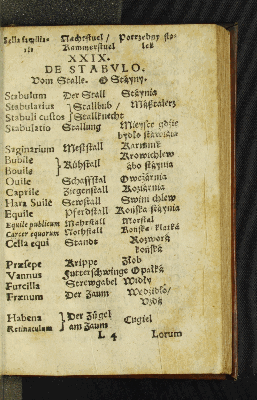 Sella familia- Nachtstuel / Potrzebny sto-
ris Kammerstuel lek
XXIX.
DE STABVLO.
Vom Stalle. O Stáyny.
Stabulum Der Stall Stáynia
Stabularius } Stallbub /
Stabuli custos } Stallknecht
Stabulatio Stallung Mieysce gdzie
bydło stawiáią
Saginarium Meststall Karmnik
Bubile } Kühstall Krowichlew
Bovile } ábo stáynia
Ouile Schaffstal Owczárnia
Caprile Ziegenstall Koziárnia
Hara Suile Sewstall Swini chlew
Equile Pferdstall Końska stáynia
Equile publicum Marstall
Carcer equorum Nothstall Końska klatká
Cella equi Stande
końská
Præsepe Krippe Żłob
Vannus Futterschwinge Opałká
Furcilla Strewgabel Widły
Frænum Der Zaum Wędzidło /
Vzdá
Habena } Der Zügel Cugiel
Retinaculum } am Zaum
L 4 Lorum